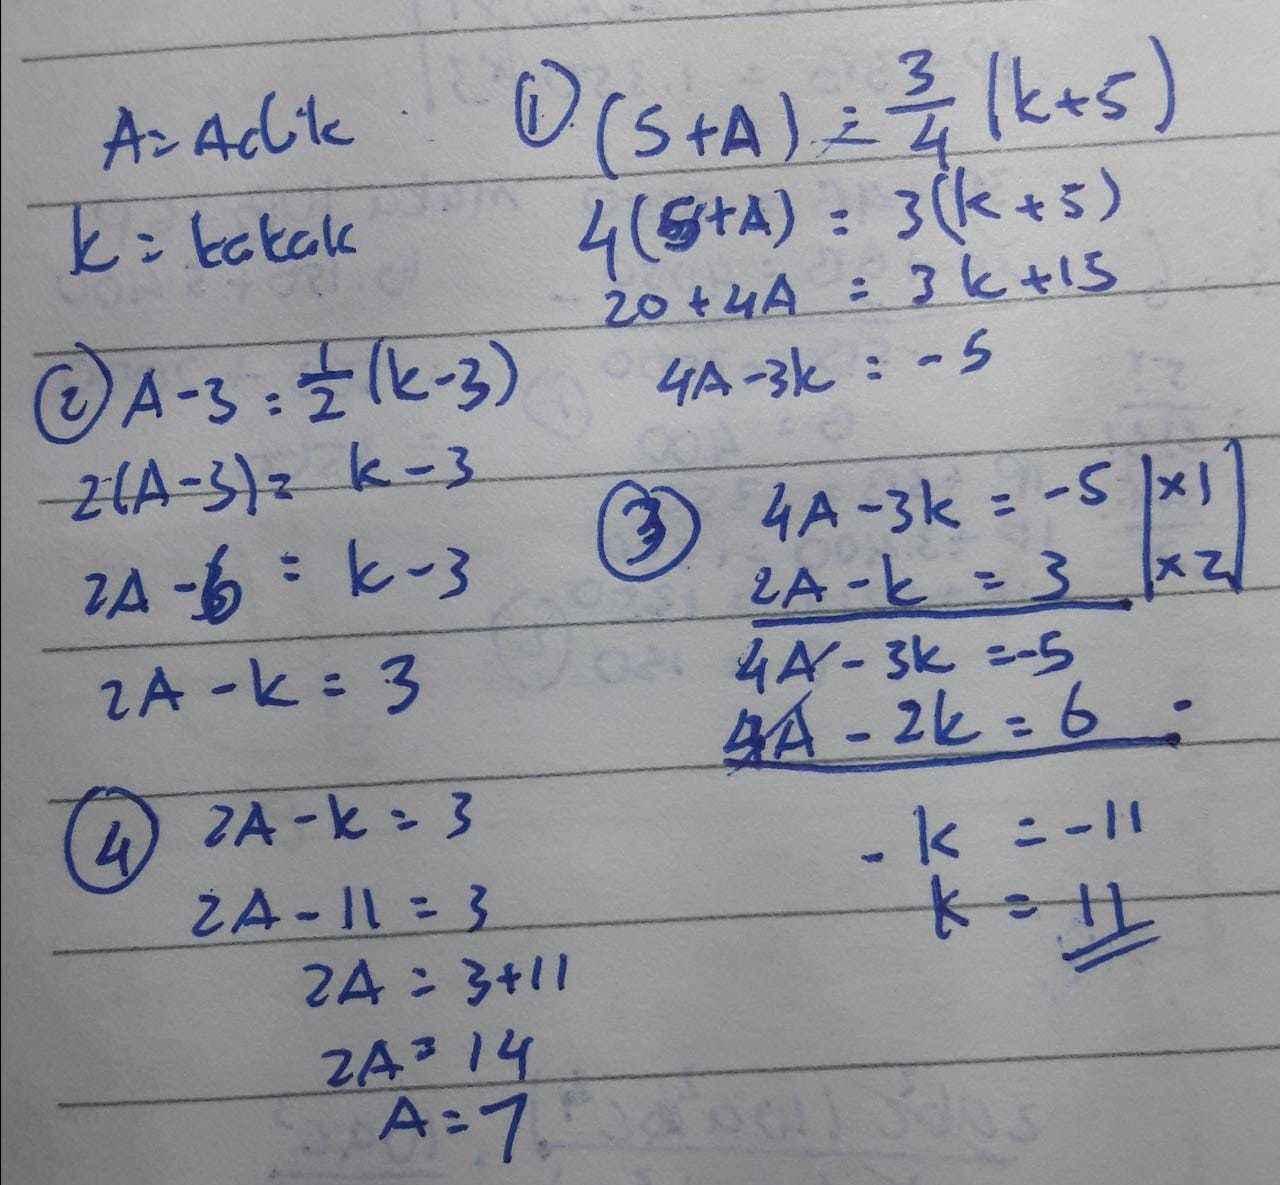 A = Adik
k = kakak
① (5 + A) = 3/4 (k + 5)
4(5 + A) = 3(k + 5)
20 + 4A = 3k + 15
4A - 3k = -5
② A - 3 = 1/2 (k - 3)
2(A - 3) = k - 3
2A - 6 = k - 3
2A - k = 3
③ 4A - 3k = -5 | x1 |
2A - k = 3 | x2 |
4A - 3k = -5
4A - 2k = 6 -
- k = -11
k = 11
④ 2A - k = 3
2A - 11 = 3
2A = 3 + 11
2A = 14
A = 7